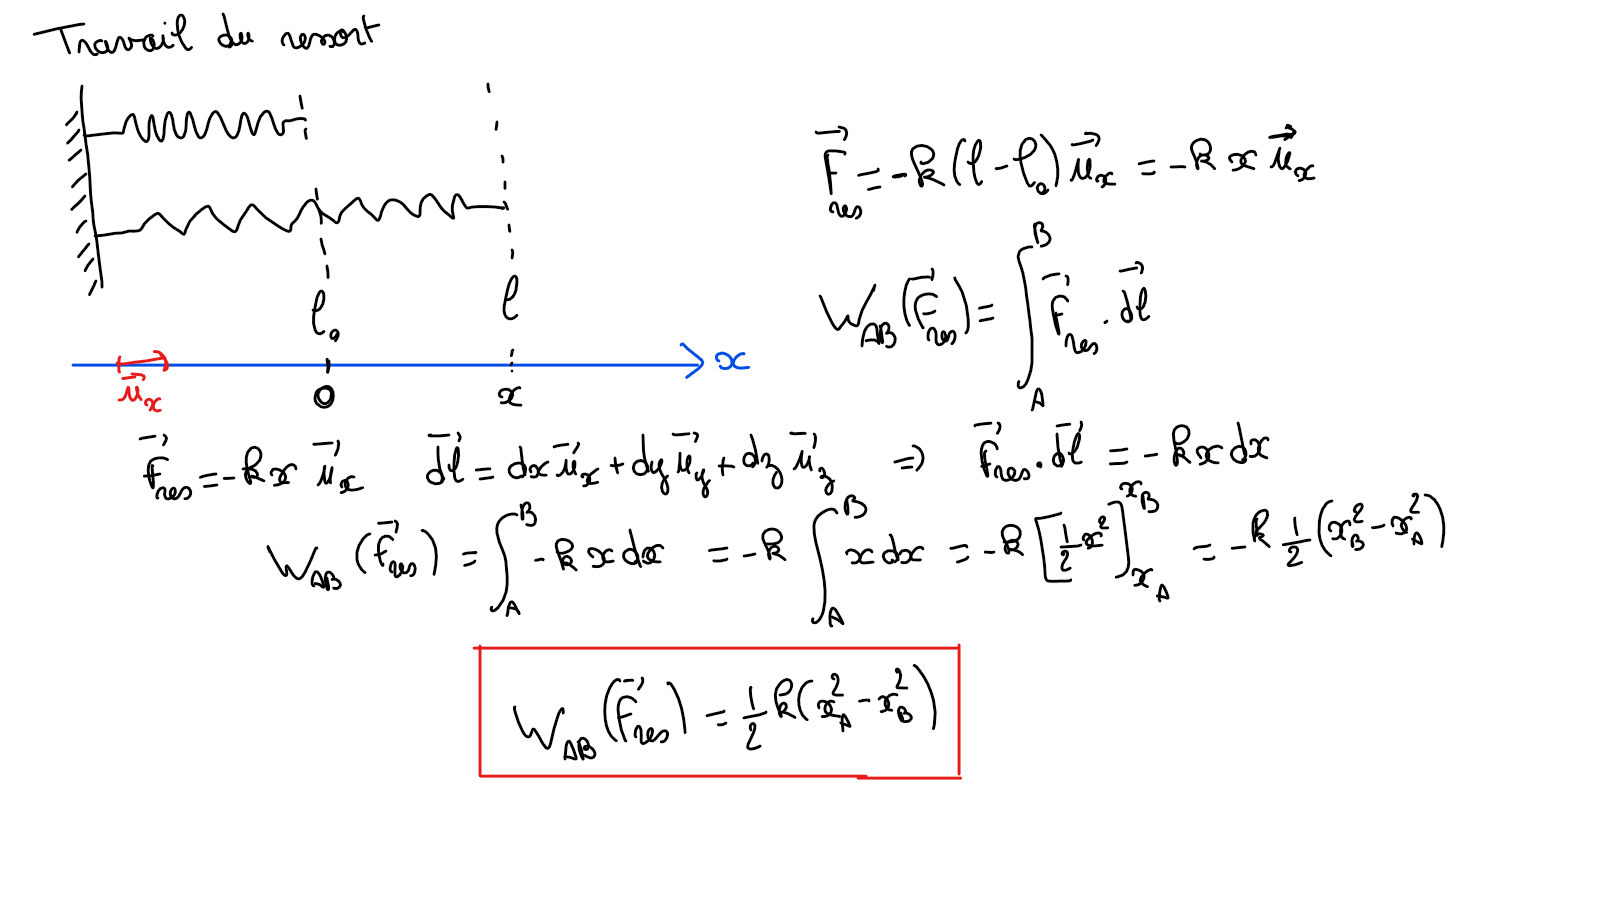 Travail du ressort
l₀ l
x
u⃗ₓ 0 x
F⃗_res = -k(l - l₀) u⃗ₓ = -k x u⃗ₓ
W_AB(F⃗_res) = ∫_A^B F⃗_res · d⃗l
F⃗_res = -k x u⃗ₓ d⃗l = dx u⃗ₓ + dy u⃗_y + dz u⃗_z ⇒ F⃗_res · d⃗l = -k x dx
W_AB(F⃗_res) = ∫_A^B -k x dx = -k ∫_A^B x dx = -k [1/2 x²]_{x_A}^{x_B} = -k 1/2 (x_B² - x_A²)
W_AB(F⃗_res) = 1/2 k(x_A² - x_B²)